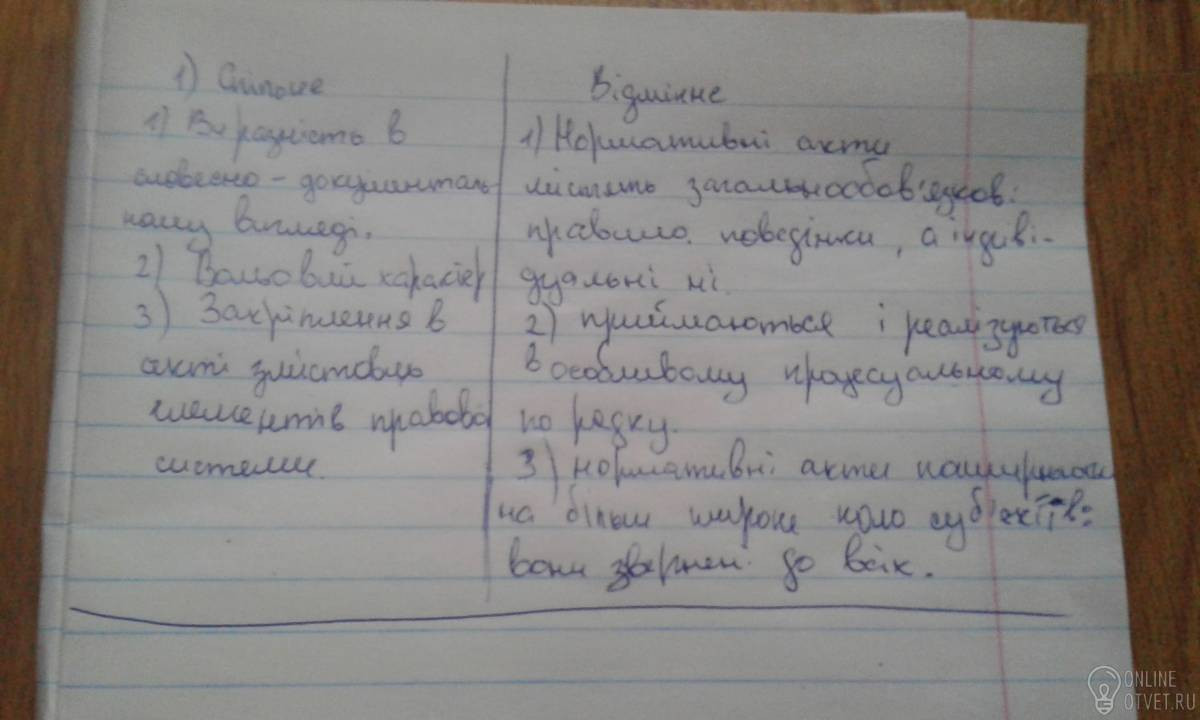 1) Спільне
1) Виразність в
словесно - документаль
ному вигляді.
2) Вольовий характер
3) Закріплення в
акті змістовць
елементів правової
системи.
Відмінне
1) Нормативні акти
містять загальнообов'язкові
правила поведінки, а індиві-
дуальні ні.
2) приймаються і реалізуються
в особливому процесуальному
порядку.
3) нормативні акти поширюються
на більш широке коло суб'єктів:
вони звернені до всіх.
ONLINE
OTVET.RU